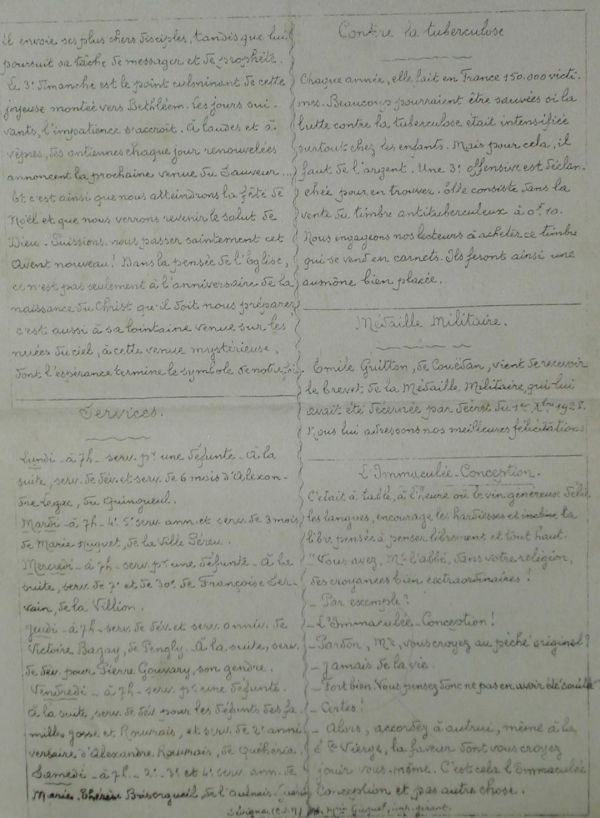 il envoie ses plus chers disciples, tandis que lui
poursuit sa tâche de messager et de prophète.
Le 3e dimanche est le point culminant de cette
joyeuse montée vers Bethléem. Les jours sui-
vants, l'impatience s'accroît. A laudes et à
vêpres, des antiennes chaque jour renouvelées
annoncent la prochaine venue du Sauveur...
Et c'est ainsi que nous atteindrons la fête de
Noël et que nous verrons revenir le salut de
Dieu. Puissions-nous passer saintement cet
Avent nouveau! Dans la pensée de l'Eglise,
ce n'est pas seulement à l'anniversaire de la
naissance du Christ qu'il doit nous préparer,
c'est aussi à sa lointaine venue sur les
nuées du ciel, à cette venue mystérieuse,
dont l'espérance termine le symbole de notre foi.
Services.
Lundi - à 7h - serv. pr une défunte - à la
suite, serv. de dév. et serv. de 6 mois d'Alexan-
dre Legac, du Quingueul.
Mardi - à 7h - 4e 5e serv. ann. et serv. de 3 mois
de Marie Huguet, de la Ville
Mercredi - à 7h - serv. pr une défunte - à la
suite, serv. de 7e et de 30e de Françoise Ser-
vain, de la Villion.
Jeudi - à 7h - serv. de dév. et serv. anniv. de
Victoire Bagay, de Pengly. A la suite, serv.
de dév. pour Pierre Gouvary, son gendre.
Vendredi - à 7h - serv. pr une défunte.
A la suite, serv. de dév. pour les défunts des fa-
milles Josse et Rouvrais, et serv. de 2e anni-
versaire d'Alexandre Rouvrais, de Quéhéria.
Samedi - à 7h - 2e 3e et 4e serv. ann. de
Marie Thérèse de l'aulnais
Contre la tuberculose
Chaque année, elle fait en France 150.000 victi-
mes. Beaucoup pourraient être sauvées si la
lutte contre la tuberculose était intensifiée
surtout chez les enfants. Mais pour cela, il
faut de l'argent. Une 3e offensive est déclan-
chée pour en trouver. Elle consiste dans la
vente du timbre antituberculeux à 0f 10.
Nous engageons nos lecteurs à acheter ce timbre
qui se vend en carnets. Ils feront ainsi une
aumône bien placée.
Médaille Militaire.
Emile Guitton, de Couëdan, vient de recevoir
le brevet de la Médaille Militaire, qui lui
avait été décernée par décret du 1er Xbre 1928.
Nous lui adressons nos meilleures félicitations
L'Immaculée-Conception.
C'était à table, à l'heure où le vin généreux délie
les langues, encourage les hardiesses et incline la
libre pensée à penser librement et tout haut.
"Vous avez, Mr l'abbé, dans votre religion,
des croyances bien extraordinaires!
- Par exemple?
- L'Immaculée-Conception!
- Pardon, Mr, vous croyez au péché originel?
- Jamais de la vie.
- Fort bien. Vous pensez donc ne pas en avoir été souillé
- Certes!
- Alors, accordez à autrui, même à la
Ste Vierge, la faveur dont vous croyez
jouir vous-même. C'est cela l'Immaculée
Conception et pas autre chose.